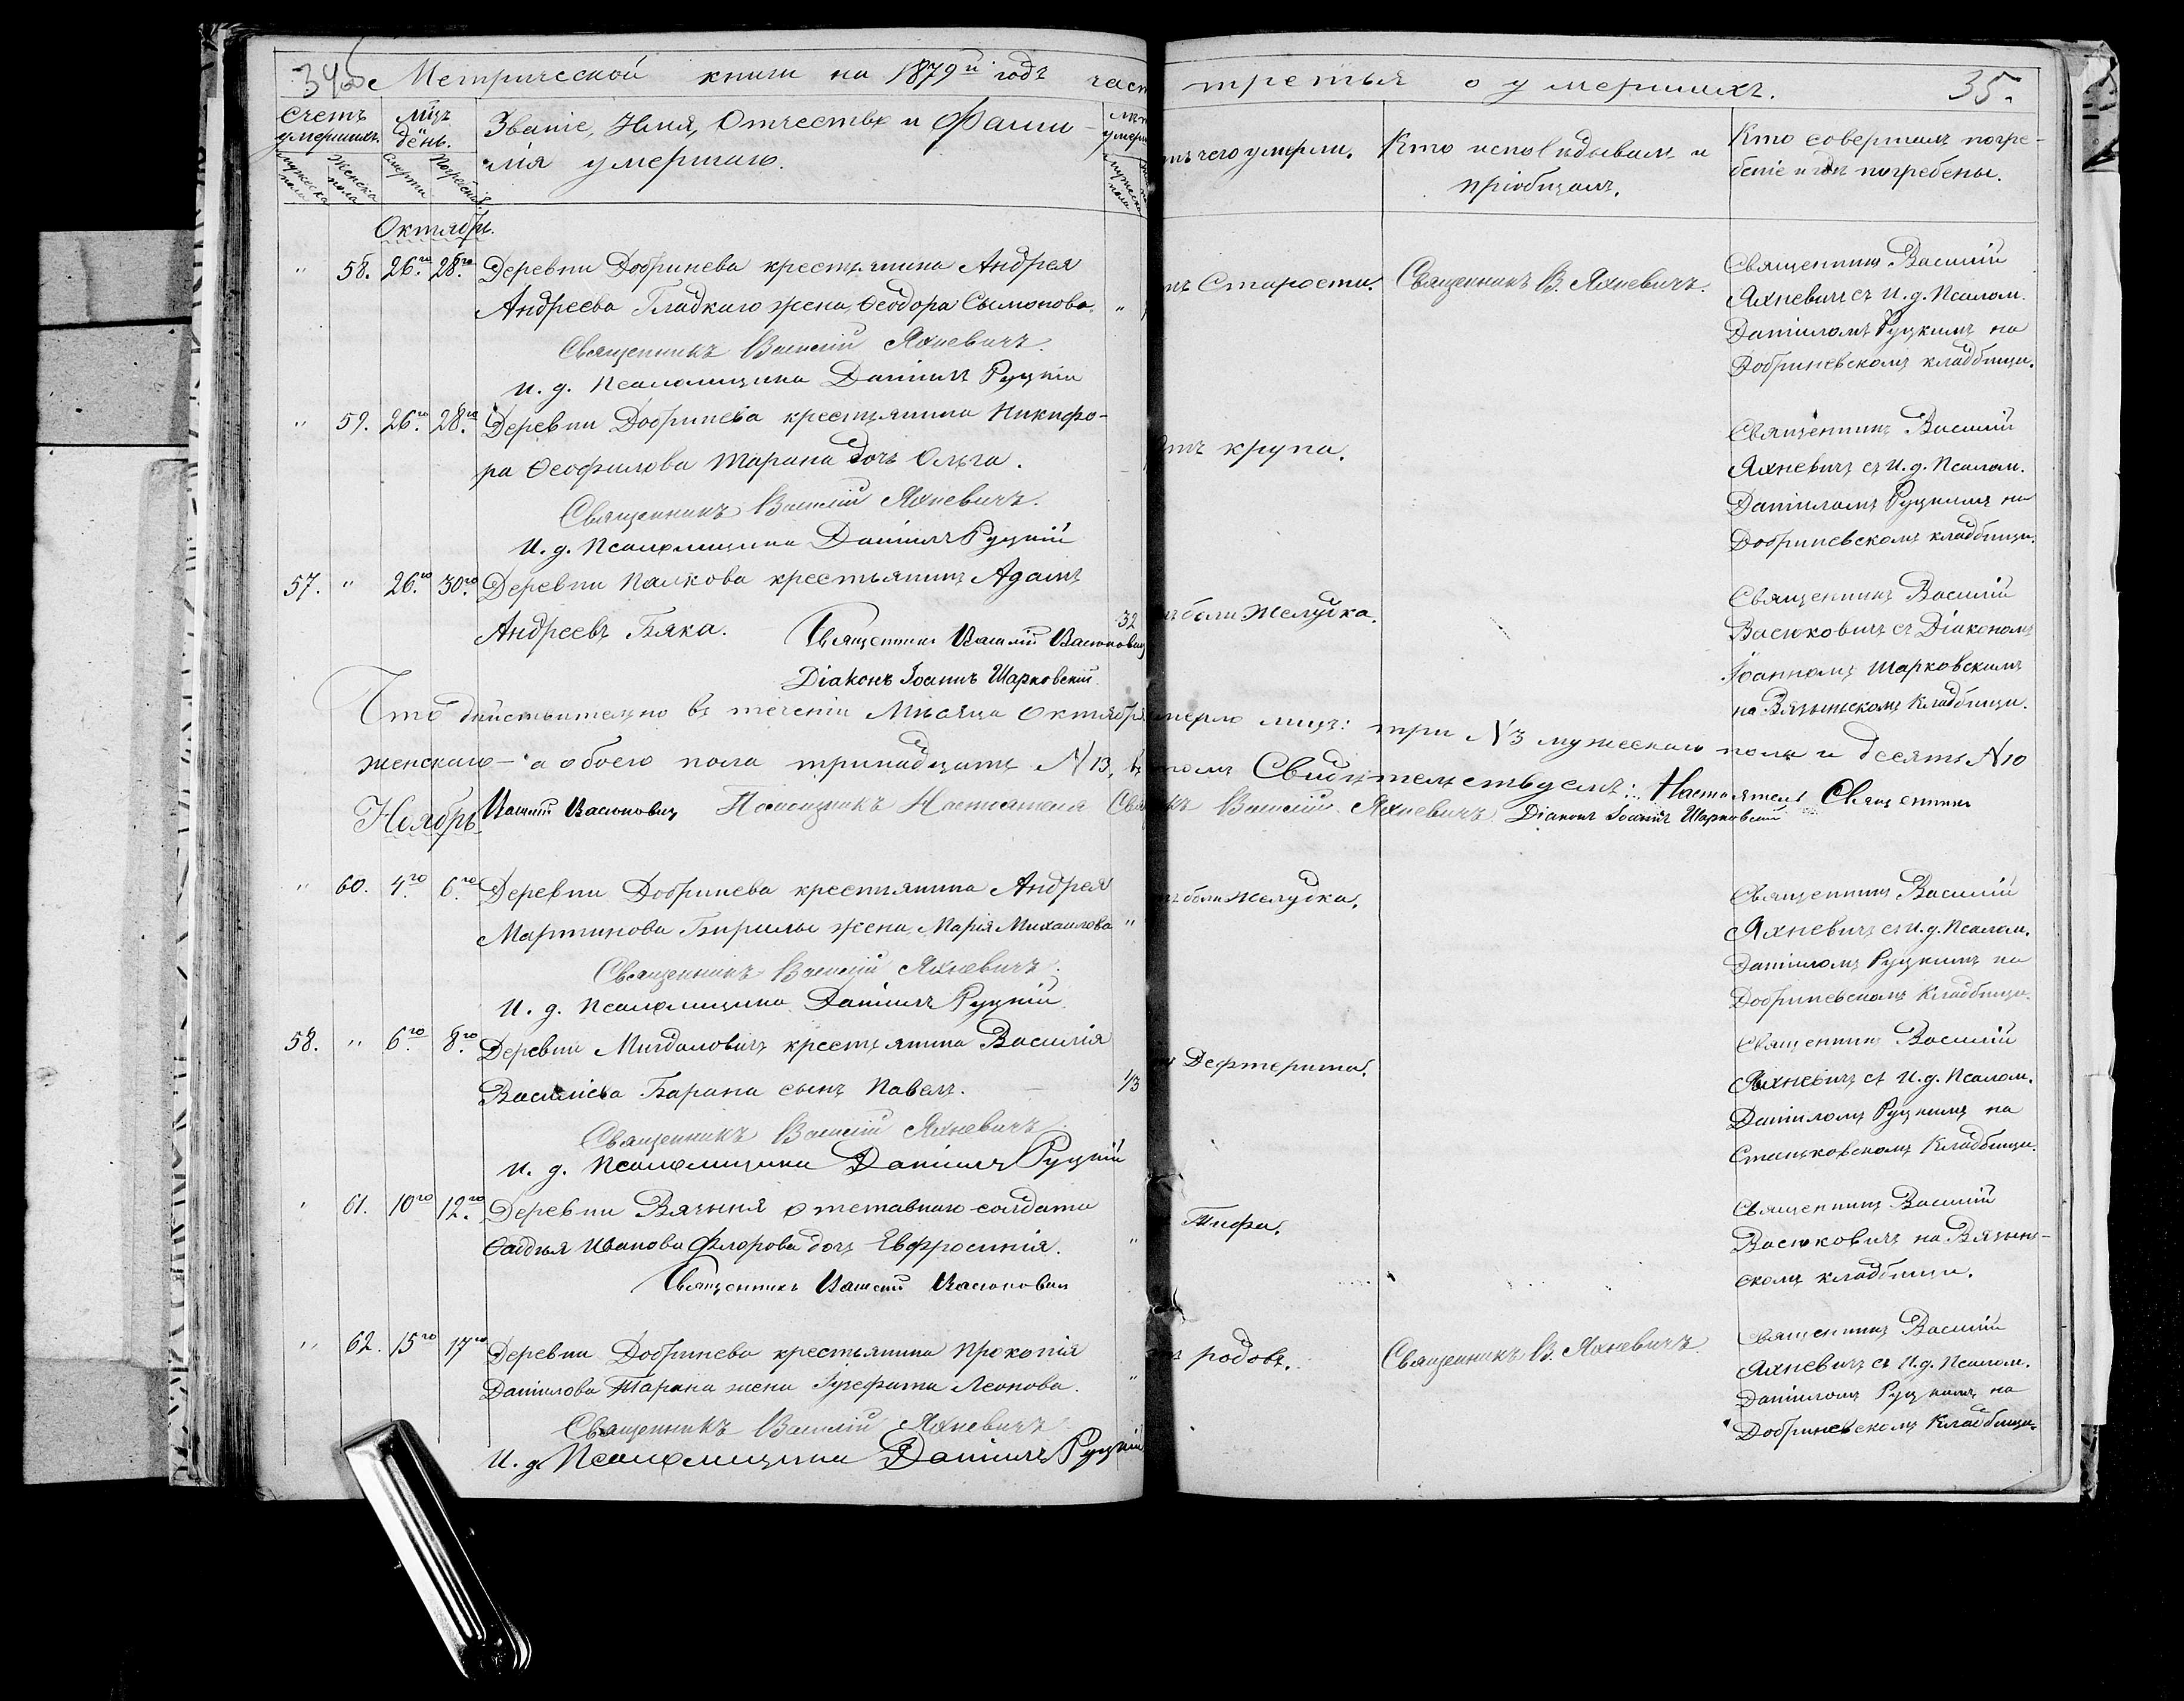 34 Метрической книги на 1879й годъ част
Счетъ умершихъ.
Мужеска пола
Женска пола
Мцъ день.
Смерти
Погребенія
Званіе, Имя, Отчество и Фами-
лія умершаго.
Октябрь.
" 58. 26го 28го Деревни Добринева крестьянина Андрея
Андреева Гладкаго жена Ѳеодора Сымонова. "
Священникъ Василій Яхневичъ.
И. д. Псаломщика Даніилъ Руцкій
" 59. 26го 28го Деревни Добринева крестьянина Никифо-
ра Ѳеофилова Тарана дочь Ольга.
Священникъ Василій Яхневичъ.
И. д. Псаломщика Даніилъ Руцкій
57. " 26го 30го Деревни Палкова крестьянинъ Адамъ
Андреевъ Бяка. 32
Священникъ Василій Васюкович
Діаконъ Іоаннъ Шарковскій
Что дѣйствительно въ теченіи Мѣсяца Октября
женскаго — а обоего пола тринадцать N 13, въ
Василій Васюковичъ Помощникъ Настоятеля Свя
Ноябрь
" 60. 4го 6го Деревни Добринева крестьянина Андрея
Мартинова Бирилы жена Марія Михаилова "
Священникъ Василій Яхневичъ.
И. д. Псаломщика Даніилъ Руцкій
58. " 6го 8го Деревни Мигдаловичъ крестьянина Василія
Васильева Барана сынъ Павелъ. 1/3
Священникъ Василій Яхневичъ
И. д. Псаломщика Даніилъ Руцкій
" 61. 10го 12го Деревни Вязыня отставнаго солдата
Ѳаддея Иванова Флорова дочь Евфросинія. "
Священникъ Василій Васюкович
" 62. 15го 17го Деревни Добринева крестьянина Прокопія
Даніилова Тарана жена Леонова. "
Священникъ Василій Яхневичъ
И. д. Псаломщика Даніилъ Руцкій
третья о умершихъ. 35.
тъ чего умерли.
Кто исповѣдывалъ и
пріобщалъ.
Кто совершалъ погре-
беніе и гдѣ погребены.
тъ Старости. Священникъ В. Яхневичъ.
Священникъ Василій
Яхневичъ съ И. д. Псалом.
Даніиломъ Руцкимъ на
Добриневскомъ кладбищи.
отъ крупа.
Священникъ Василій
Яхневичъ съ И. д. Псалом.
Даніиломъ Руцкимъ на
Добриневскомъ кладбищи.
ъ боли Желудка.
Священникъ Василій
Васюковичъ съ Діакономъ
Іоанномъ Шарковскимъ
на Вязынскомъ Кладбищи.
умерло лицъ: три N 3 мужескаго пола и десять N 10
томъ Свидѣтельствуемъ: Настоятель Священникъ
къ Василій Яхневичъ. Діаконъ Іоаннъ Шарковскій
ъ боли Желудка.
Священникъ Василій
Яхневичъ съ И. д. Псалом.
Даніиломъ Руцкимъ на
Добриневскомъ Кладбищи.
Дефтерита.
Священникъ Василій
Яхневичъ съ И. д. Псалом.
Даніиломъ Руцкимъ на
Станьковскомъ Кладбищи.
Тифа.
Священникъ Василій
Васюковичъ на Вязын-
скомъ кладбищи.
родовъ. Священникъ В. Яхневичъ
Священникъ Василій
Яхневичъ съ И. д. Псалом.
Даніиломъ Руцкимъ на
Добриневскомъ Кладбищи.